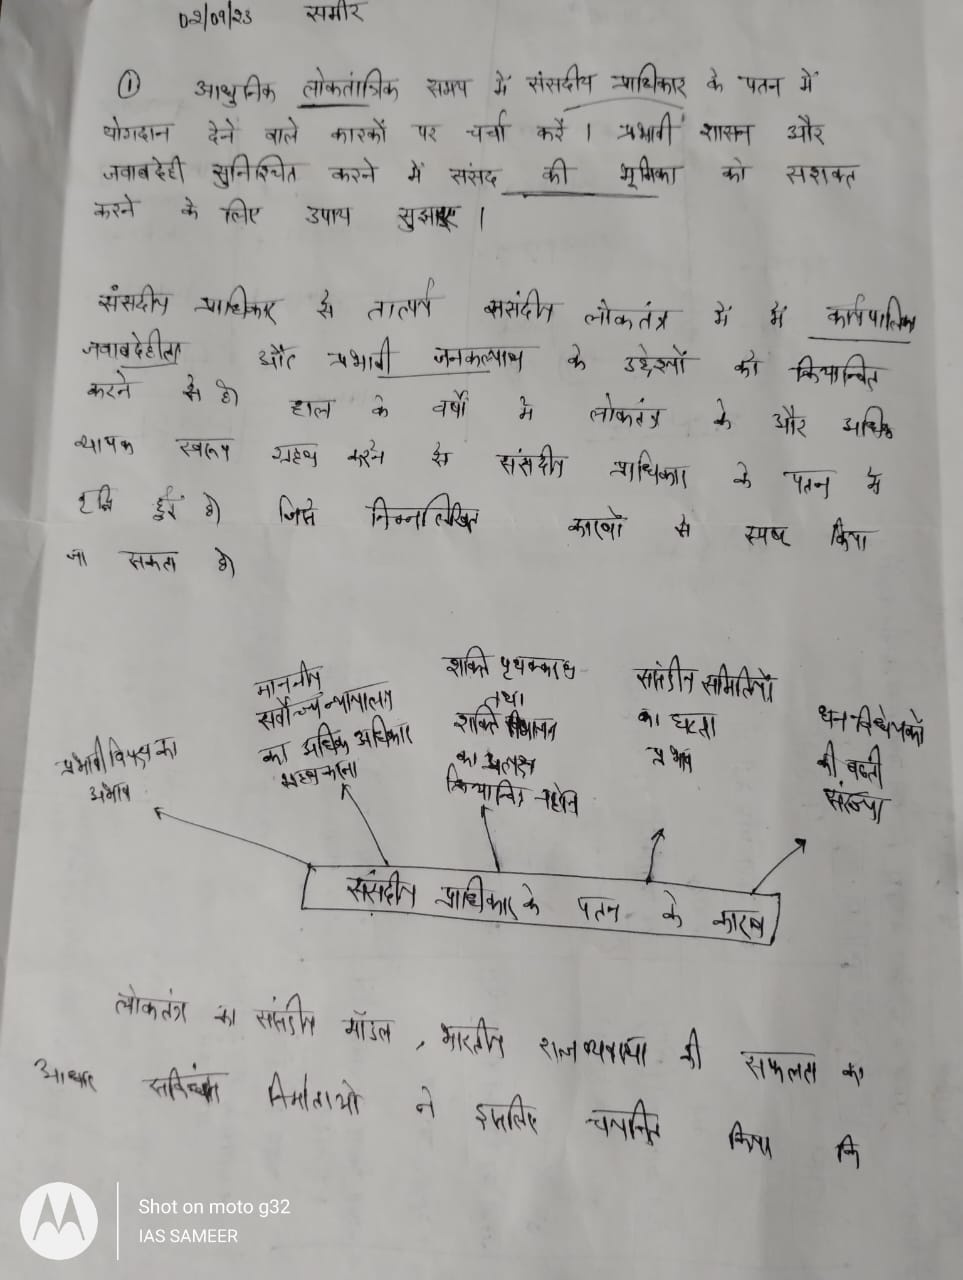 02/09/23 समीर
① आधुनिक लोकतांत्रिक समय में संसदीय प्राधिकार के पतन में
योगदान देने वाले कारकों पर चर्चा करें । प्रभावी शासन और
जवाबदेही सुनिश्चित करने में संसद की भूमिका को सशक्त
करने के लिए उपाय सुझाए ।
संसदीय प्राधिकार से तात्पर्य संसदीय लोकतंत्र में में कार्यपालिका
जवाबदेहीता और प्रभावी जनकल्याण के उद्देश्यों को क्रियान्वित
करने से है। हाल के वर्षों में लोकतंत्र के और अधिक
व्यापक स्वरूप ग्रहण करने से संसदीय प्राधिकार के पतन में
वृद्धि हुई है। जिसे निम्नलिखित कारणों से स्पष्ट किया
जा सकता है।
प्रभावी विपक्ष का
अभाव
माननीय
सर्वोच्च न्यायालय
का अधिक अधिकार
ग्रहण करना
शक्ति पृथक्करण
तथा
शक्ति विभाजन
का
क्रियान्वित न होना
संसदीय समितियों
का घटता
प्रभाव
धन विधेयकों
की बढ़ती
संख्या
संसदीय प्राधिकार के पतन के कारण
लोकतंत्र का संसदीय मॉडल , भारतीय राजव्यवस्था की सफलता का
आधार संविधान निर्माताओं ने इसलिए चयनित किया कि
Shot on moto g32
IAS SAMEER